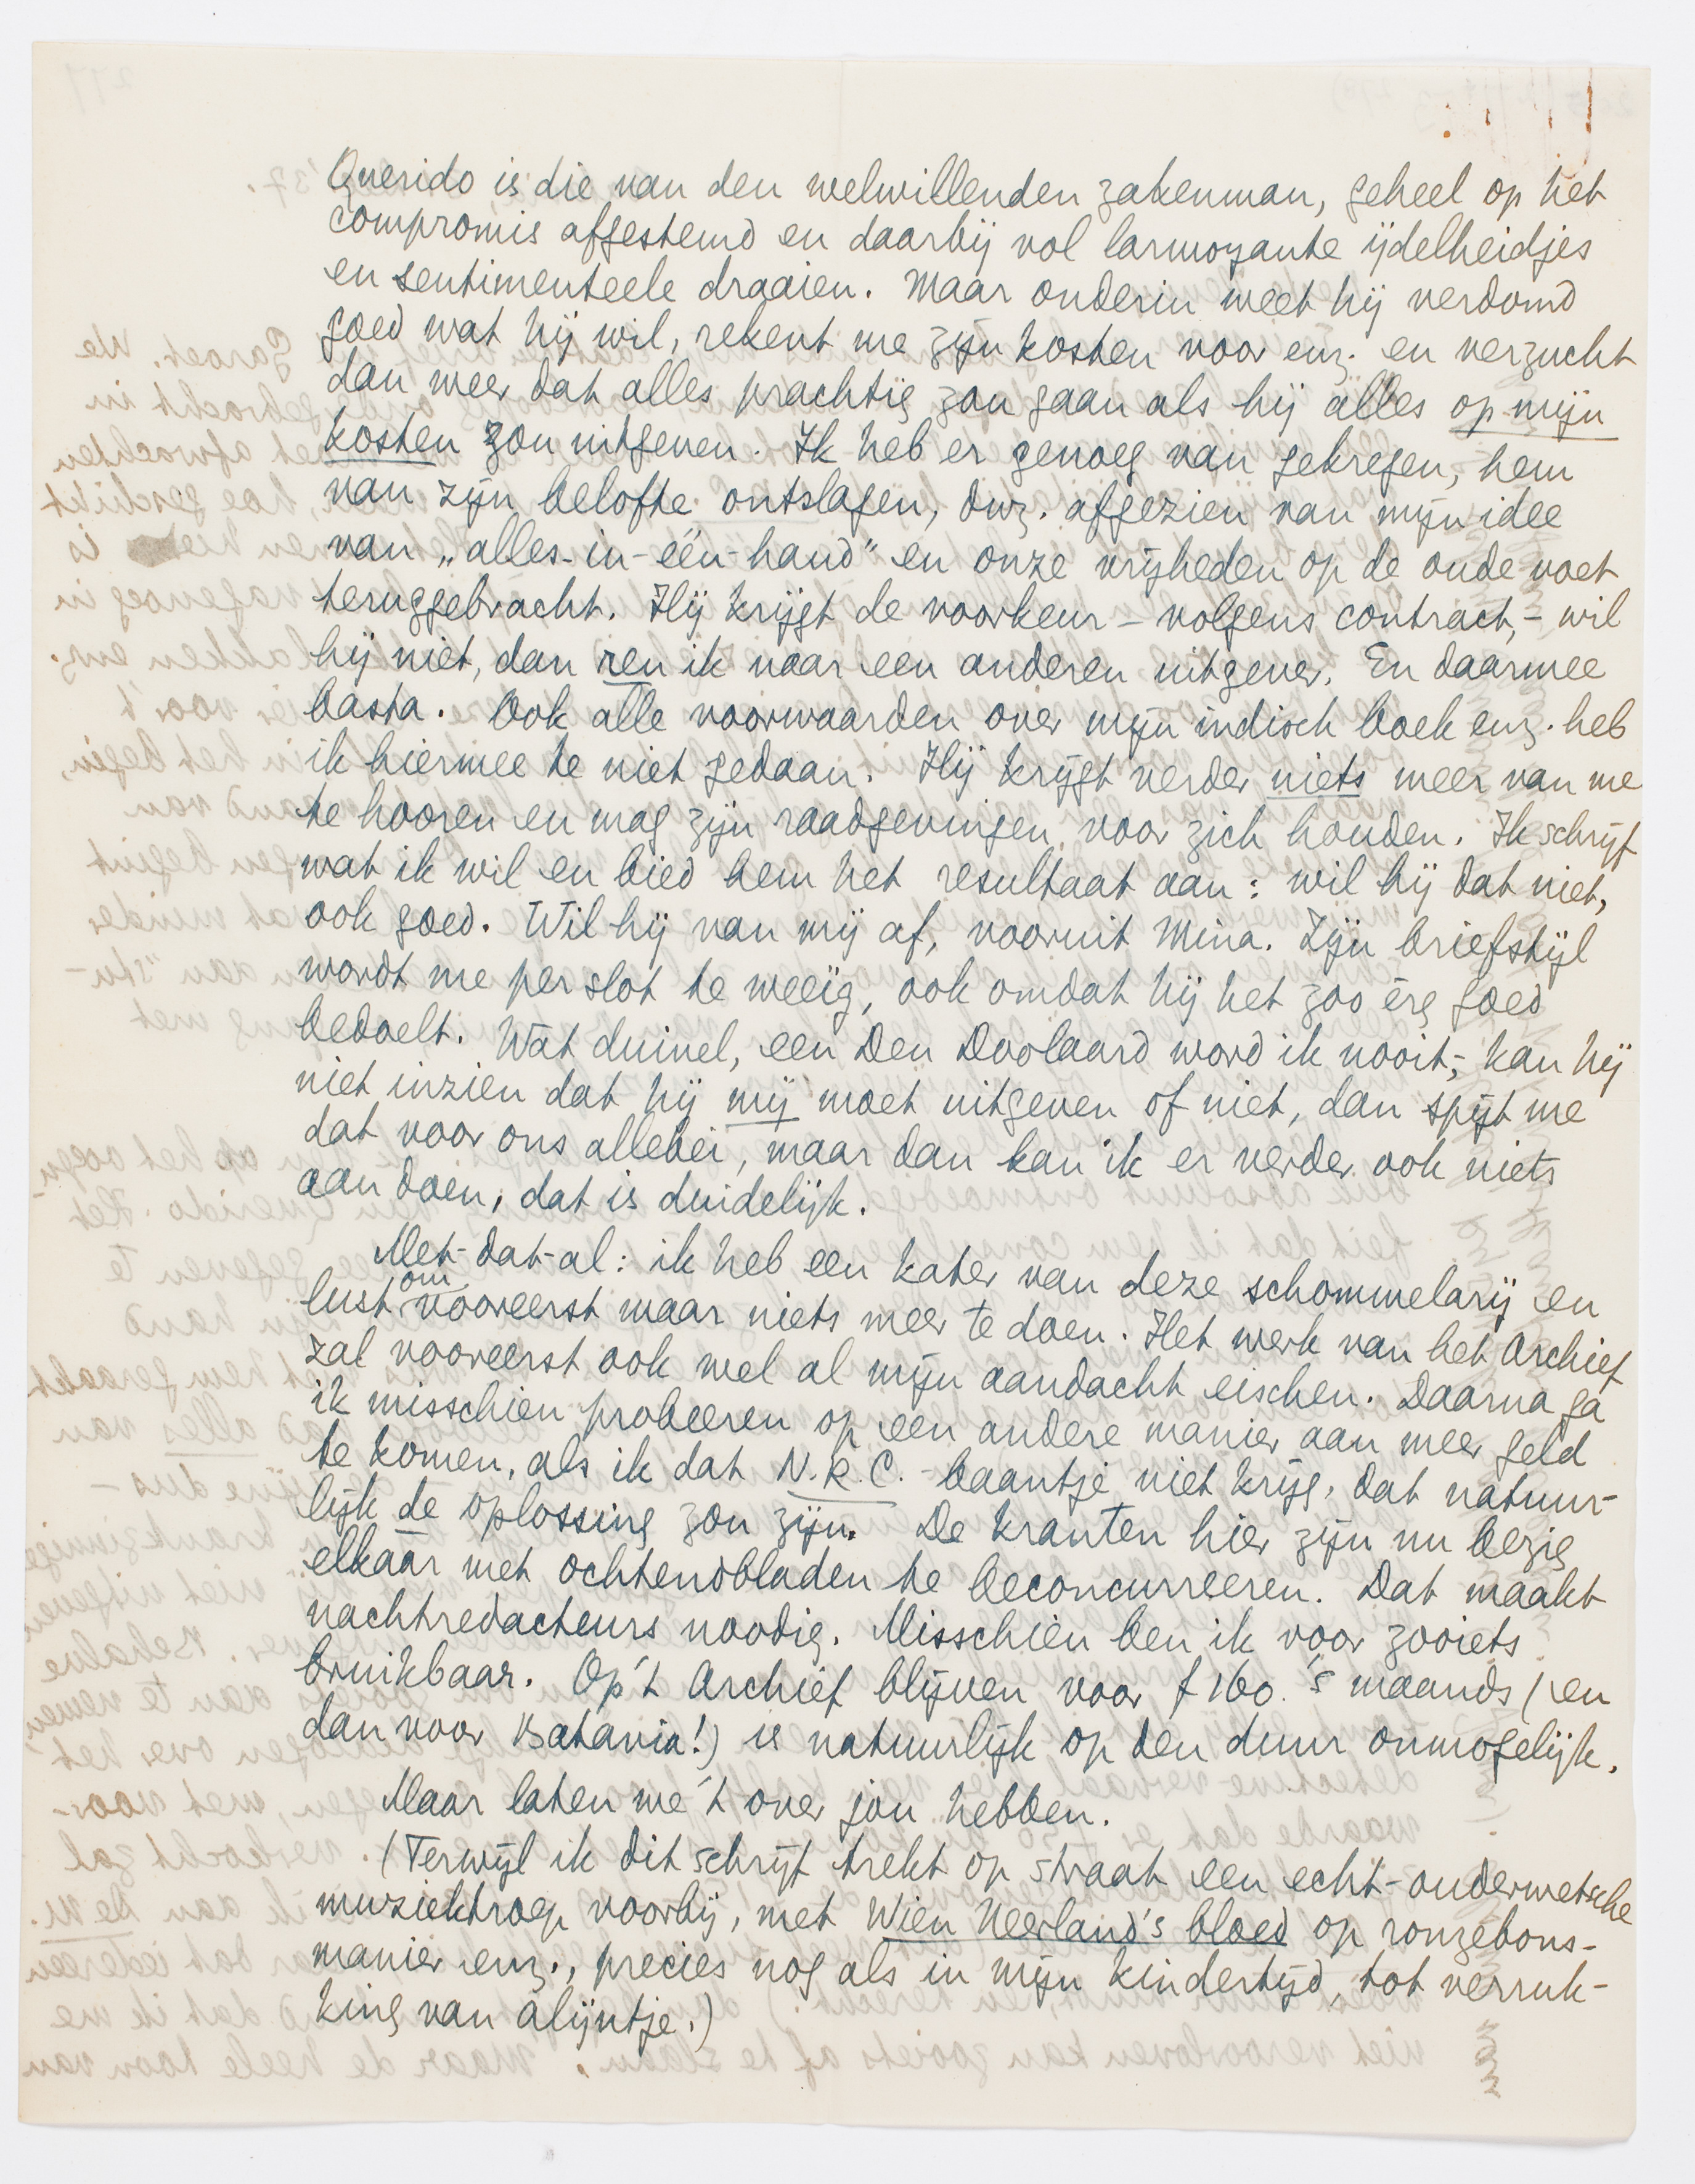 Querido is die van den welwillenden zakenman, geheel op het
compromis afgestemd en daarbij vol larmoyante ijdelheidjes
en sentimenteele draaien. Maar onderin weet hij verdomd
goed wat hij wil, rekent me zijn kosten voor enz. en verzucht
dan weer dat alles prachtig zou gaan als hij alles op mijn
kosten zou uitgeven. Ik heb er genoeg van gekregen, hem
van zijn belofte ontslagen, dwz. afgezien van mijn idee
van „alles-in-één-hand" en onze vrijheden op de oude voet
teruggebracht. Hij krijgt de voorkeur – volgens contract, – wil
hij niet, dan ren ik naar een anderen uitgever. En daarmee
basta. Ook alle voorwaarden over mijn indisch boek enz. heb
ik hiermee te niet gedaan. Hij krijgt verder niets meer van me
te hooren en mag zijn raadgevingen voor zich houden. Ik schrijf
wat ik wil en bied hem het resultaat aan: wil hij dat niet,
ook goed. Wil hij van mij af, vooruit Mina. Zijn briefstijl
wordt me per slot te weeïg, ook omdat hij het zoo èrg goed
bedoelt. Wat duivel, een Den Doolaard word ik nooit; kan hij
niet inzien dat hij mij moet uitgeven of niet, dan spijt me
dat voor ons allebei, maar dan kan ik er verder ook niets
aan doen, dat is duidelijk.
Met-dat-al: ik heb een kater van deze schommelarij en
lust om vooreerst maar niets meer te doen. Het werk van het Archief
zal vooreerst ook wel al mijn aandacht eischen. Daarna ga
ik misschien probeeren op een andere manier aan meer geld
te komen, als ik dat N.R.C.-baantje niet krijg, dat natuur-
lijk de oplossing zou zijn. De kranten hier zijn nu bezig
elkaar met ochtendbladen te beconcurreeren. Dat maakt
nachtredacteurs noodig. Misschien ben ik voor zooiets
bruikbaar. Op 't Archief blijven voor f 160. 's maands (en
dan voor Batavia!) is natuurlijk op den duur onmogelijk.
Maar laten we 't over jou hebben.
(Terwijl ik dit schrijf trekt op straat een echt-ouderwetsche
muziektroep voorbij, met Wien Neerland's bloed op romzebons-
manier enz., precies nog als in mijn kindertijd, tot verruk-
king van Alijntje.)